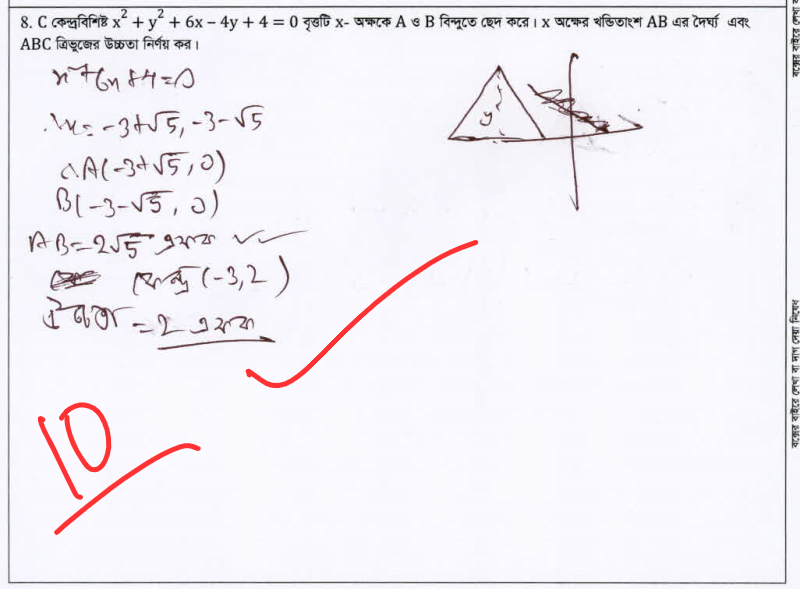 8. C কেন্দ্রবিশিষ্ট x² + y² + 6x − 4y + 4 = 0 বৃত্তটি x- অক্ষকে A ও B বিন্দুতে ছেদ করে। x অক্ষের খন্ডিতাংশ AB এর দৈর্ঘ্য এবং
ABC ত্রিভুজের উচ্চতা নির্ণয় কর।
x²+6x+4=0
∴x=-3+√5, -3-√5
∴A(-3+√5, 0)
B(-3-√5, 0)
AB=2√5 একক
কেন্দ্র (-3,2)
উচ্চতা =2 একক
y
10
বক্সের বাইরে লেখা বা দাগ দেয়া নিষেধ